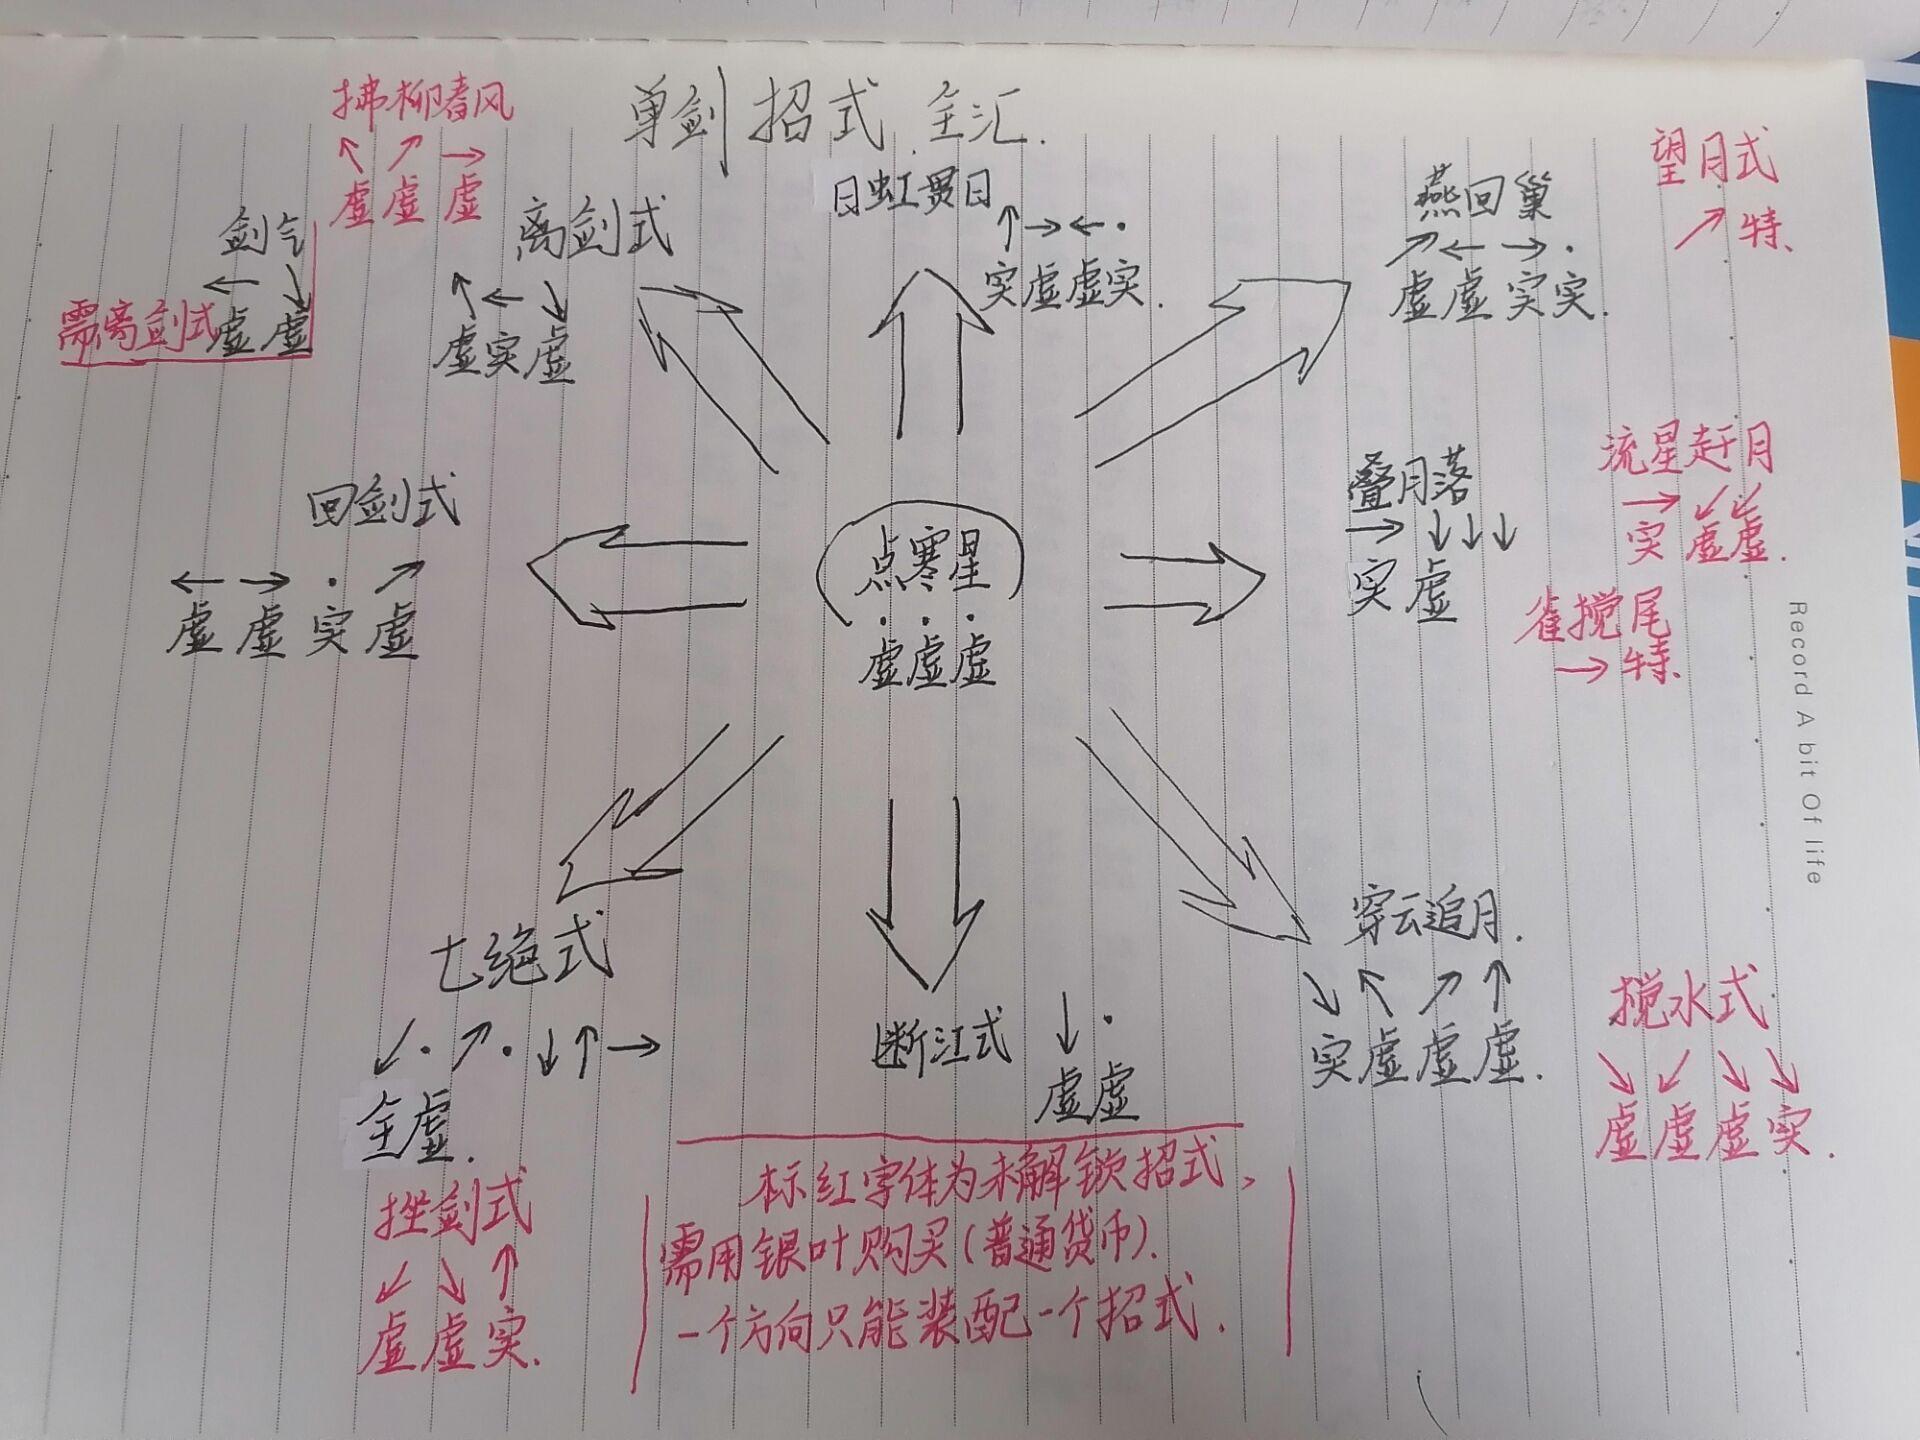 单剑招式全汇.
拂柳春风
↖ ↗ →
虚 虚 虚
剑气
← ↘
虚 虚
需离剑式
离剑式
↖ ← ↘
虚 实 虚
日虹贯日
↑ → ← ·
实 虚 虚 实.
燕回巢
↗ ← → ·
虚 虚 实 实.
望月式
↗ 特.
回剑式
← → · ↗
虚 虚 实 虚
点寒星
· · ·
虚虚虚
叠月落
→ ↓↓↓
实 虚
流星赶月
→ ↙↙
实 虚虚.
雀搅尾
→ 特.
七绝式
↙ · ↗ · ↓↑→
全虚.
挫剑式
↙ ↘ ↑
虚 虚 实.
断江式
↓ ·
虚虚
穿云追月.
↘ ↖ ↗ ↑
实 虚 虚 虚.
搅水式
↘ ↙ ↘ ↘
虚 虚 虚 实.
标红字体为未解锁招式、
需用银叶购买(普通货币).
一个方向只能装配一个招式.
Record A bit Of life